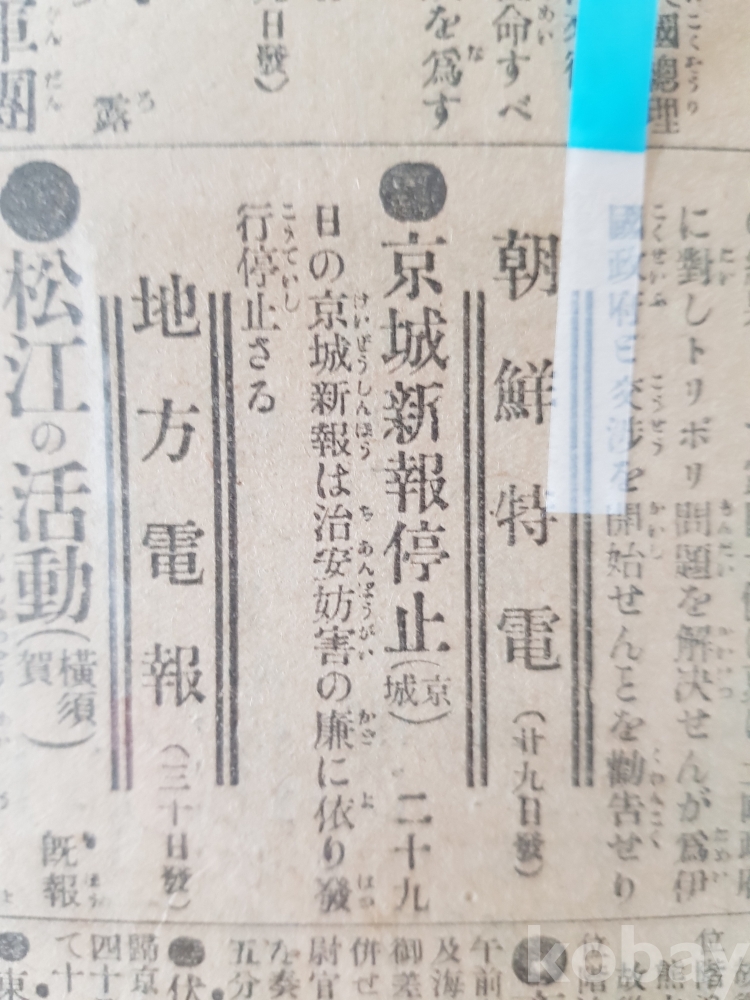 國總理
命すべ
を爲す
日發)
露
軍團
に對しトリポリ問題を解决せんが爲伊
國政府と交渉を開始せんとを勸告せり
朝鮮特電(廿九日發)
●京城新報停止(京城) 二十九
日の京城新報は治安妨害の廉に依り發
行停止さる
地方電報(三十日發)
●松江の活動(横須賀) 既報
位階
熊
故
位階
午前
及海
御差
併せ
尉官
を奏
五分
●伏
歸京
四十
て十
●東
kobay